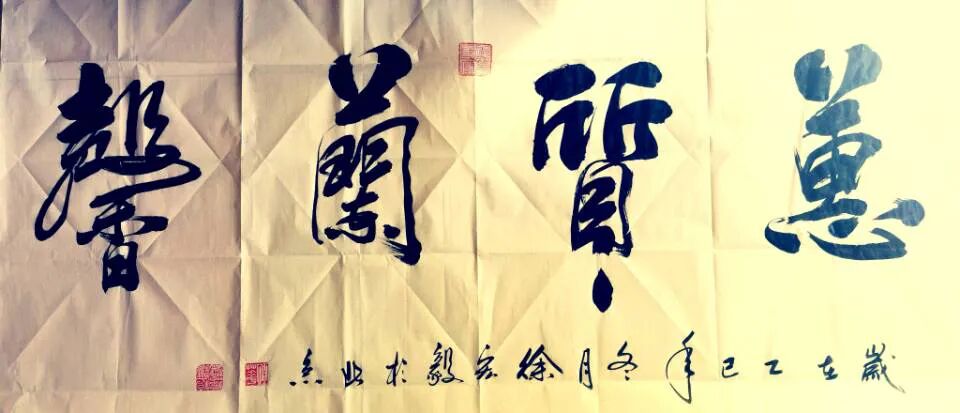 蕙質蘭馨
歲在乙巳年冬月徐宏毅於北京